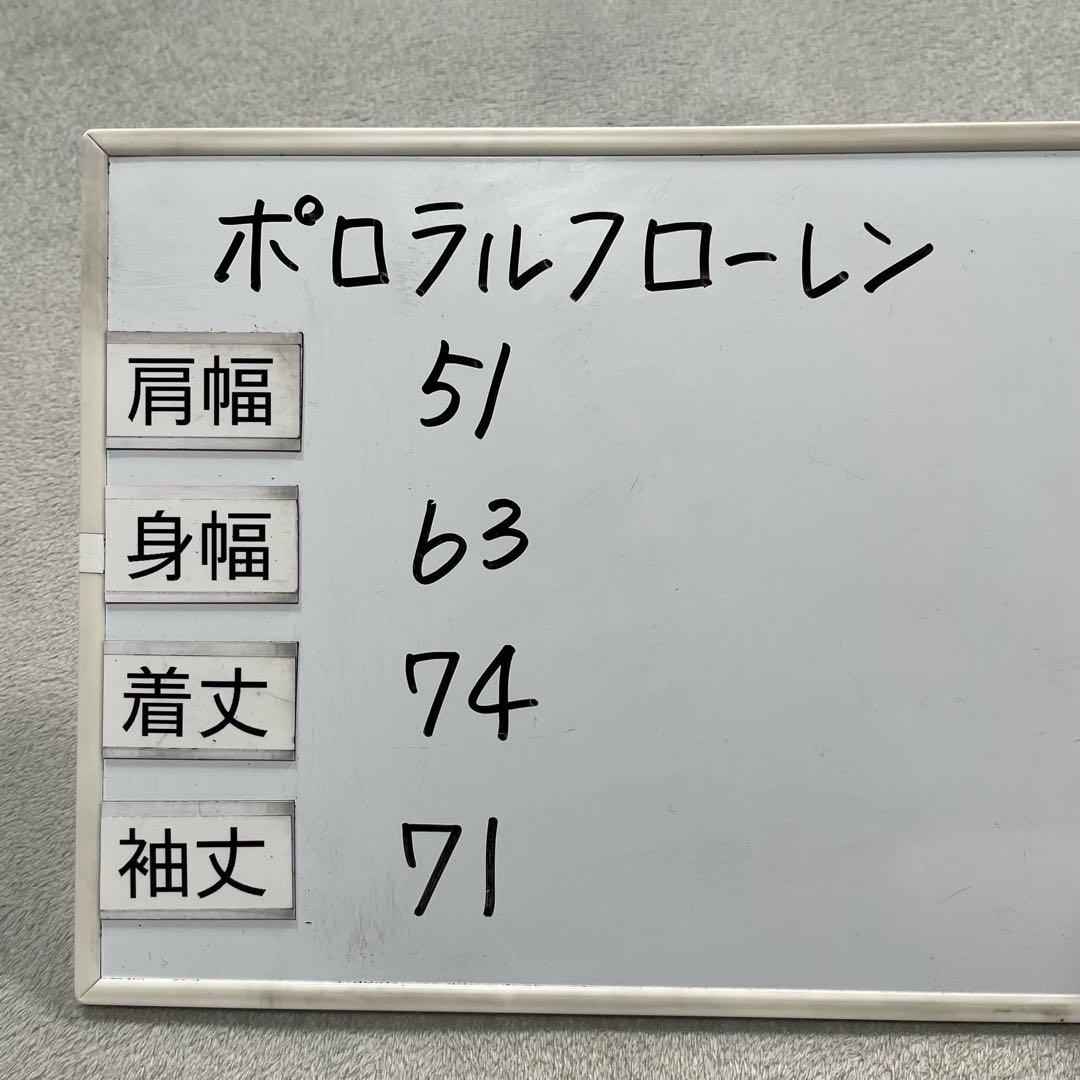 ポロラルフローレン
肩幅 51
身幅 63
着丈 74
袖丈 71